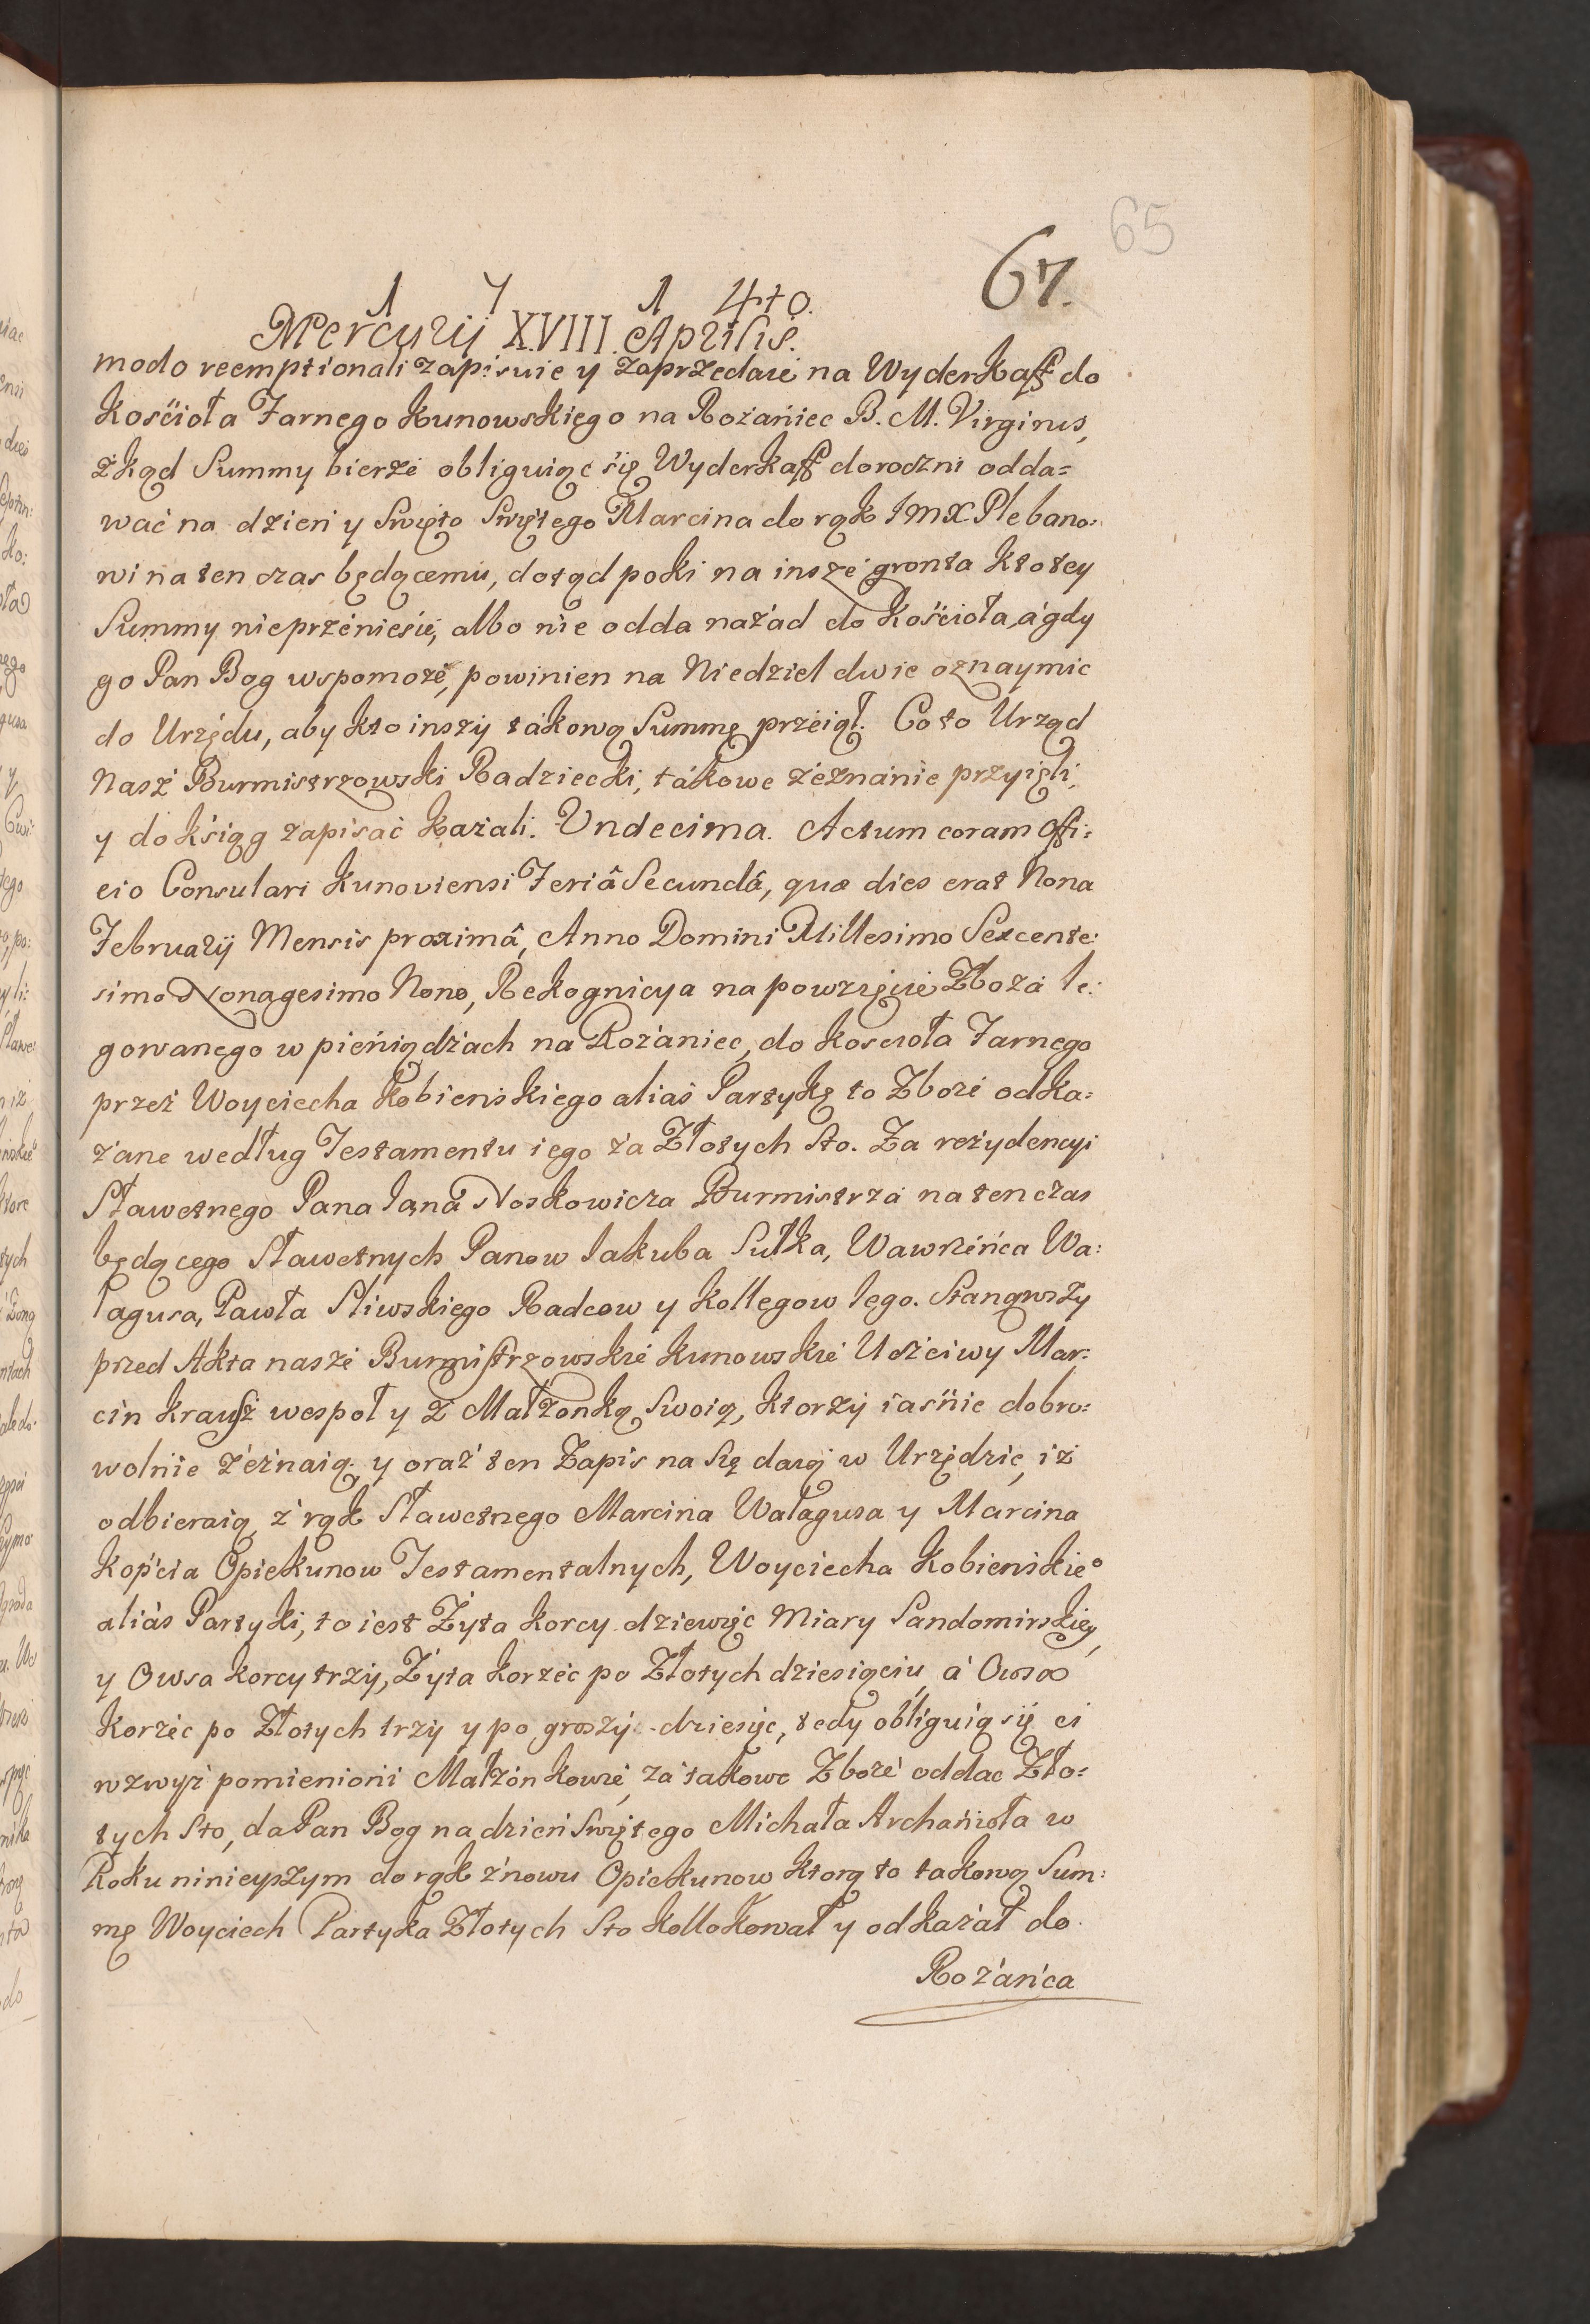 65
67.
1 7 1 4to.
Mercurij XVIII. Aprilis.
modo reemptionali zapisuie y zaprzedaie na Wyderkaff do
Kościoła Farnego Kunowskiego na Rożaniec B. M. Virginis,
zkąd Summy bierze obliguiąc się Wyderkaff doroczni odda=
wać na dzień y Swięto Swiętego Marcina do rąk IMX Plebano:
wi na ten czas będącemu, dotąd poki na insze gronta ktotey
Summy nieprzeniesie, albo nie odda nazad do Kościoła, á gdy
go Pan Bog wspomoże, powinien na Niedziel dwie oznaymic
do Urzędu, aby kto inszy tákową Summę przeiął. Co to Urząd
Nasz Burmistrzowski Radziecki, tákowe zeznánie przyięli,
y do ksiąg zapisać kazali. Undecima. Actum coram Offi:
cio Consulari Kunoviensi Feriâ Secundâ, quæ dies erat Nona
February Mensis proximâ, Anno Domini Millesimo Sexcente:
simo Nonagesimo Nono, Rekognicya na powzięcie Zboża le:
gowanego w pieniądzach na Rożaniec, do koscioła Farnego
przez Woyciecha Kobienskiego alias Partykę to Zboże odka:
zane według Testamentu iego za Złotych Sto. Za rezydencyi
Sławetnego Pana Iana Noskowicza Burmistrza na ten czas
będącego Sławetnych Panow Iakuba Sułka, Wawrzeńca Wa:
łagusa, Pawła Sliwskiego Radcow y Kollegow Iego. Stanąwszy
przed Akta nasze Burmistrzowskie Kunowskie Uczciwy Mar:
cin Krausz wespoł y z Małżonką Swoią, ktorzy iaśnie dobro:
wolnie zeznaią, y oraz ten Zapis na Się daią w Urzędzie, iż
odbieraią z rąk Sławetnego Marcina Wałagusa y Marcina
Kopcia Opiekunow Testamentalnych, Woyciecha Kobienskieo
aliás Partyki, to iest Żyta korcy dziewięc Miary Sandomirskiey,
y Owsa korcy trzy, Żyta korzec po Złotych dziesięciu, á Owsa
Korzec po Złotych trzy y po groszy dziesięc, tedy obliguią się ci
wzwyż pomienioni Małżonkowie, za takowe Zboże oddac Zło:
tych Sto, da Pan Bog na dzień Swiętego Michała Archanioła w
Roku ninieyszym do rąk znowu Opiekunow ktorą to takową Sum:
mę Woyciech Partyka Złotych Sto kollokował y odkazał do
Rożańca